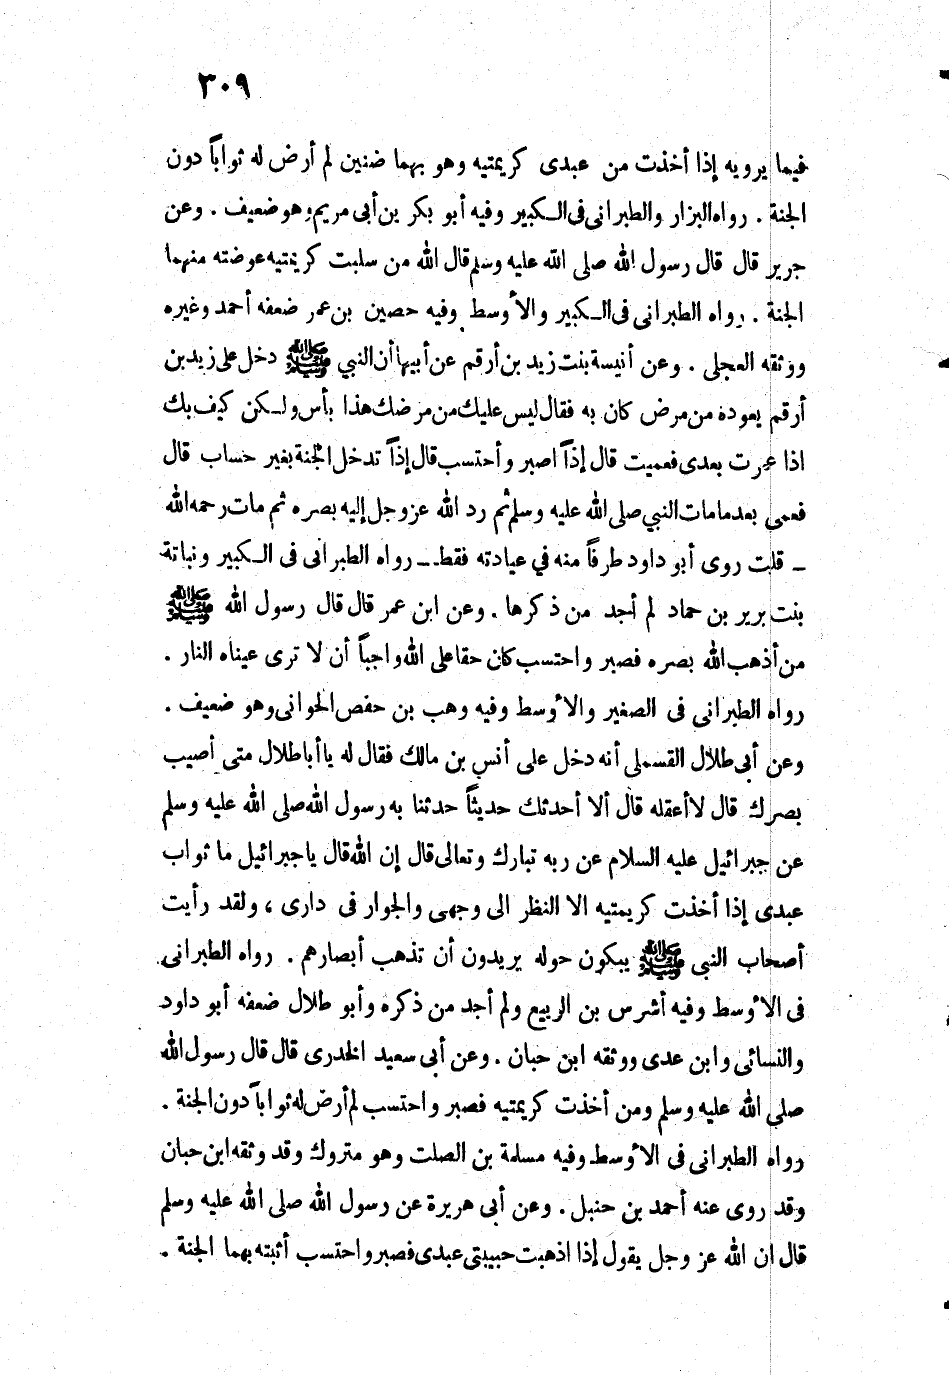 ٣٠٩
فيما يرويه إذا أخذت من عبدى كريمتيه وهو بهما ضنين لم أرض له ثواباً دون
الجنة . رواه البزار والطبرانى فى الكبير وفيه أبو بكر بن أبى مريم وهو ضعيف . وعن
جرير قال قال رسول الله صلى الله عليه وسلم قال الله من سلبت كريمتيه عوضته منهما
الجنة . رواه الطبرانى فى الكبير والأوسط وفيه حصين بن عمر ضعفه أحمد وغيره
ووثقه العجلى . وعن أنيسة بنت زيد بن أرقم عن أبيها أن النبي ﷺ دخل على زيد بن
أرقم يعوده من مرض كان به فقال ليس عليك من مرضك هذا بأس ولكن كيف بك
اذا عمرت بعدى فعميت قال إذاً اصبر وأحتسب قال إذاً تدخل الجنة بغير حساب قال
فعمى بعد مامات النبي صلى الله عليه وسلم ثم رد الله عز وجل إليه بصره ثم مات رحمه الله
ـ قلت روى أبو داود طرفاً منه في عيادته فقط ـ رواه الطبرانى فى الكبير ونباتة
بنت برير بن حماد لم أجد من ذكرها . وعن ابن عمر قال قال رسول الله ﷺ
من أذهب الله بصره فصبر واحتسب كان حقا على الله واجباً أن لا ترى عيناه النار .
رواه الطبرانى فى الصغير والأوسط وفيه وهب بن حفص الحرانى وهو ضعيف .
وعن أبى ظلال القسملى أنه دخل على أنس بن مالك فقال له يا أبا ظلال متى أصيب
بصرك قال لا أعقله قال ألا أحدثك حديثاً حدثنا به رسول الله صلى الله عليه وسلم
عن جبرائيل عليه السلام عن ربه تبارك وتعالى قال إن الله قال يا جبرائيل ما ثواب
عبدى إذا أخذت كريمتيه الا النظر الى وجهى والجوار فى دارى ، ولقد رأيت
أصحاب النبى ﷺ يبكون حوله يريدون أن تذهب أبصارهم . رواه الطبرانى
فى الأوسط وفيه أشرس بن الربيع ولم أجد من ذكره وأبو ظلال ضعفه أبو داود
والنسائى وابن عدى ووثقه ابن حبان . وعن أبى سعيد الخدرى قال قال رسول الله
صلى الله عليه وسلم ومن أخذت كريمتيه فصبر واحتسب لم أرض له ثواباً دون الجنة .
رواه الطبرانى فى الأوسط وفيه مسلمة بن الصلت وهو متروك وقد وثقه ابن حبان
وقد روى عنه أحمد بن حنبل . وعن أبى هريرة عن رسول الله صلى الله عليه وسلم
قال ان الله عز وجل يقول إذا اذهبت حبيبتى عبدى فصبر واحتسب أثبته بهما الجنة .